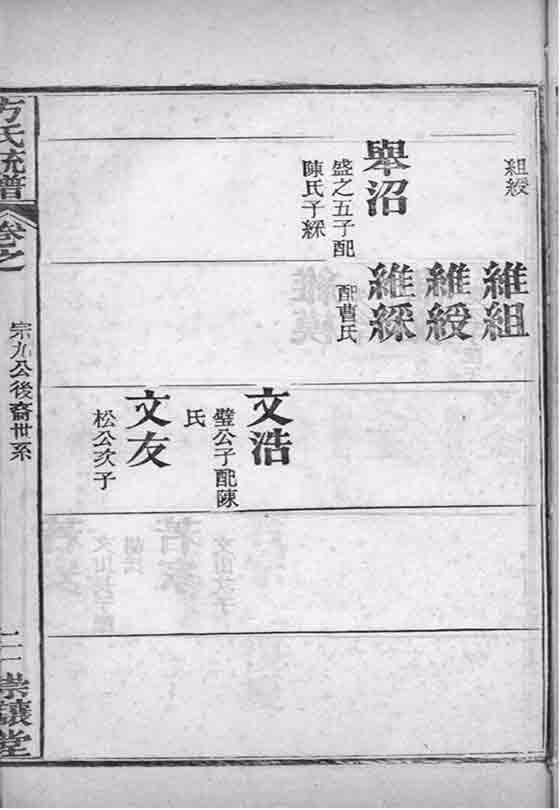 組綬
舉沼
盛之五子配
陳氏子綵
維組
維綬
維綵
配曹氏
文浩
璧公子配陳
氏
文友
松公次子
方氏統譜
卷之
宗九公後裔世系
崇讓堂